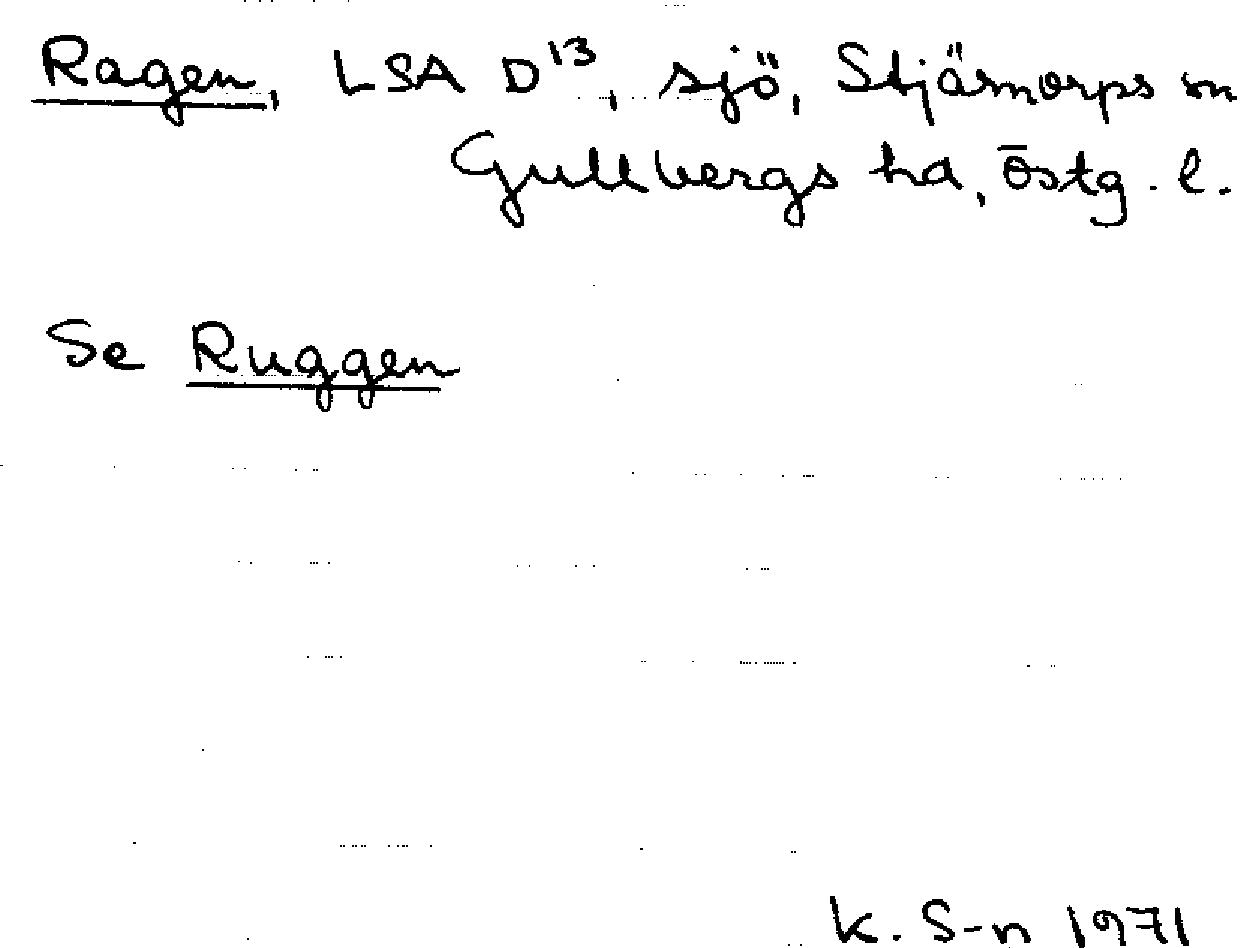 Ragen, LSA D¹³, sjö, Stjärnorps sn
Gullbergs hd, Östg. l.
Se Ruggen
K. S-n 1971